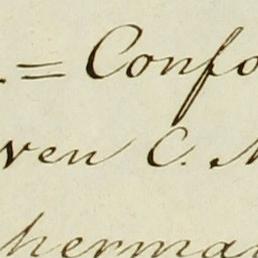 = Confo
ven C.
herma